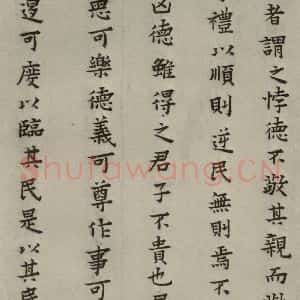 者謂之悖德不敬其親而
禮以順則逆民無則焉不
凶德雖得之君子不貴也
思可樂德義可尊作事可
退可度以臨其民是以其民
Shufawang.CN